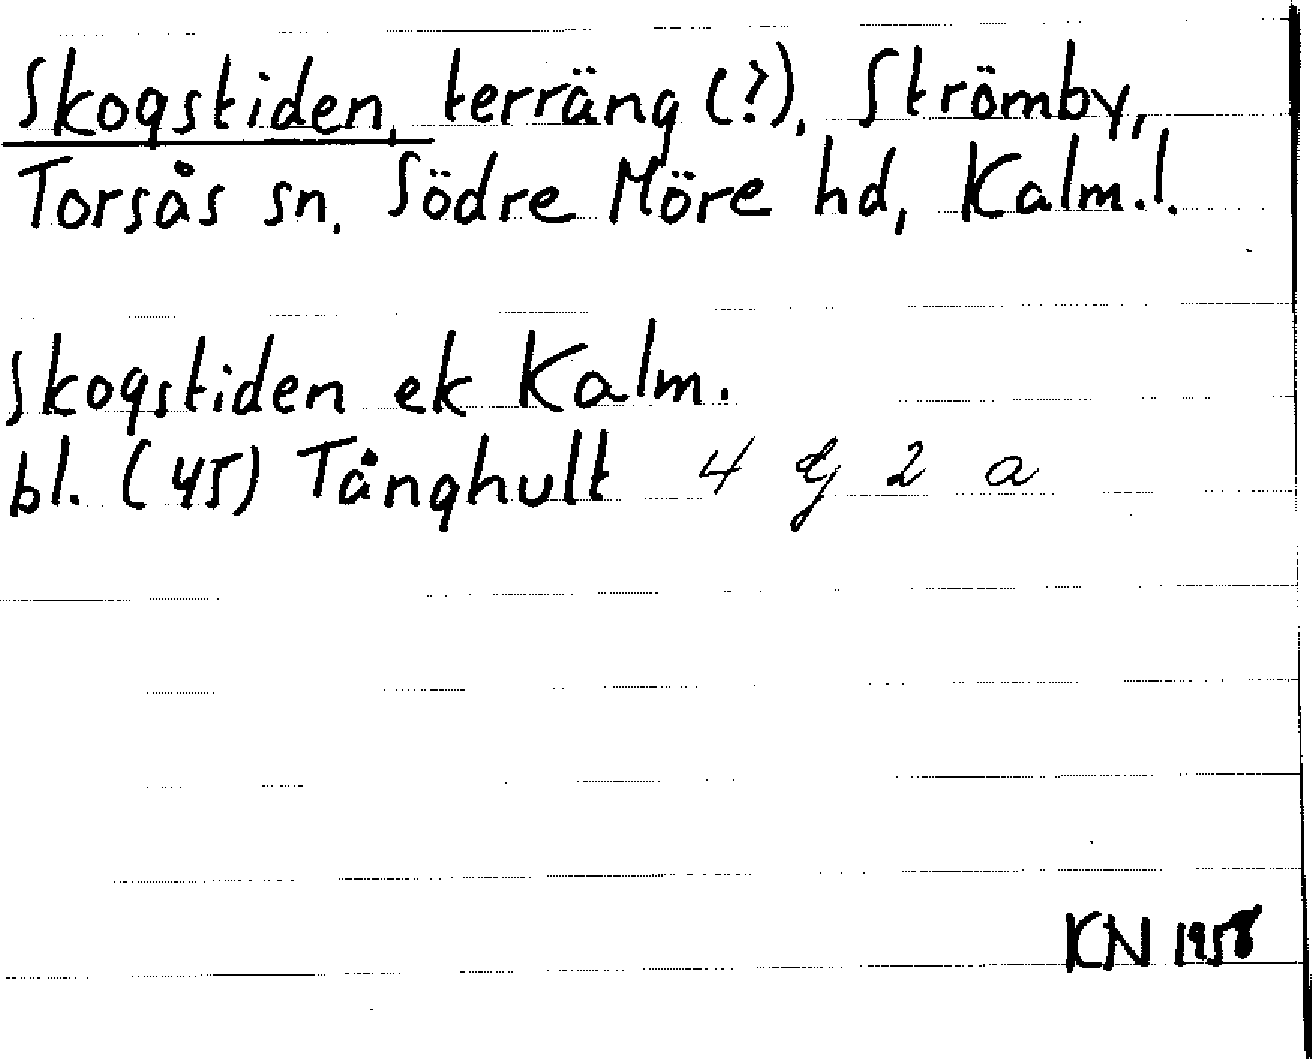 Skogstiden, terräng (?), Strömby,
Torsås sn, Södre Möre hd, Kalm.l.
Skogstiden ek Kalm.
bl. (45) Tånghult 4 G 2 a
KN 1958